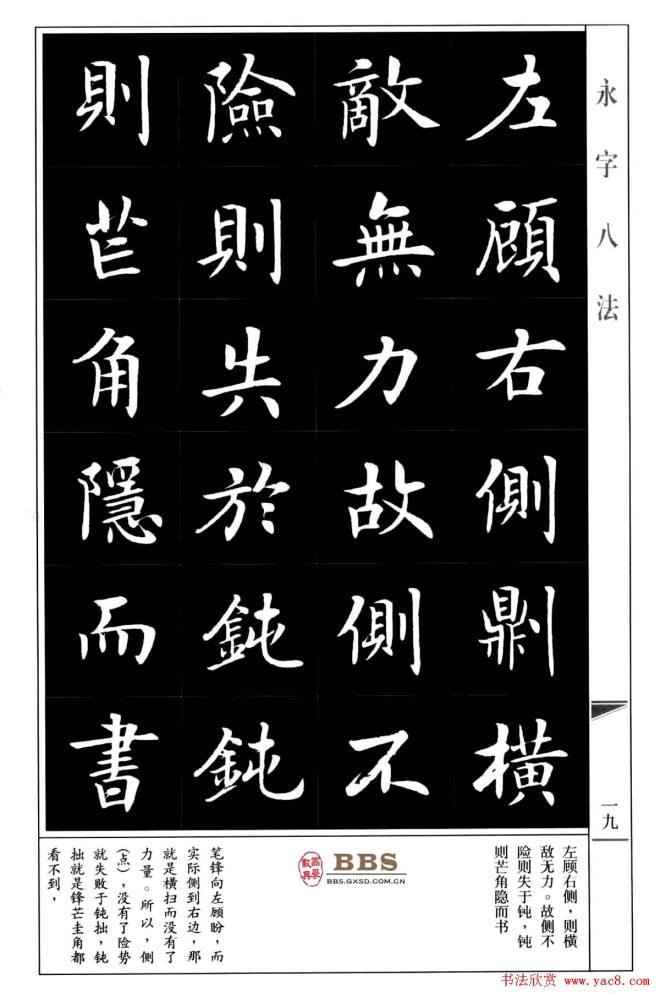 永字八法
一九
左顧右側𠟭橫
敵無力故側不
險則失於鈍鈍
則芒角隱而書
左顾右侧，则横
敌无力。故侧不
险则失于钝，钝
则芒角隐而书
BBS
BBS.GXSD.COM.CN
笔锋向左顾盼，而
实际侧到右边，那
就是横扫而没有了
力量。所以，侧
(点)，没有了险势
就失败于钝拙，钝
拙就是锋芒圭角都
看不到，
书法欣赏 www.yac8.com